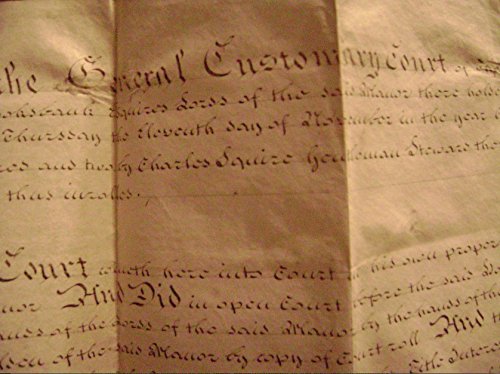 the General Customary Court of
Esquires Lords of the said Manor there holde
Thursday the Eleventh day of November in the year
red and two by Charles Squire Gentleman Steward the
thus inrolled.
Court cometh here into Court in his own proper
nor And Did in open Court before the said
ands of the Lords of the said Manor by the hands of the
of the said Manor by copy of Court roll And t